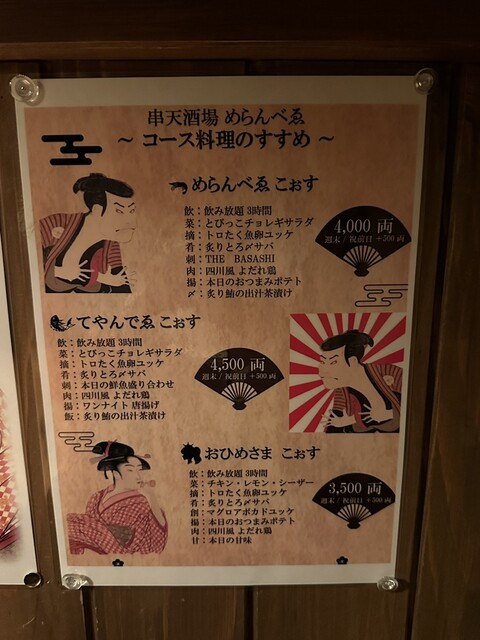 串天酒場 めらんべゑ
～ コース料理のすすめ ～
めらんべゑ こぉす
飲：飲み放題 3時間
菜：とびっこチョレギサラダ
摘：トロたく魚卵ユッケ
肴：炙りとろ〆サバ
刺：THE BASASHI
肉：四川風 よだれ鶏
揚：本日のおつまみポテト
〆：炙り鮪の出汁茶漬け
4,000 両
週末 / 祝前日 +500 両
てやんでゑ こぉす
飲：飲み放題 3時間
菜：とびっこチョレギサラダ
摘：トロたく魚卵ユッケ
肴：炙りとろ〆サバ
刺：本日の鮮魚盛り合わせ
肉：四川風 よだれ鶏
揚：ワンナイト 唐揚げ
飯：炙り鮪の出汁茶漬け
4,500 両
週末 / 祝前日 +500 両
おひめさま こぉす
飲：飲み放題 3時間
菜：チキン・レモン・シーザー
摘：トロたく魚卵ユッケ
肴：炙りとろ〆サバ
創：マグロアボカドユッケ
揚：本日のおつまみポテト
肉：四川風 よだれ鶏
甘：本日の甘味
3,500 両
週末 / 祝前日 +500 両